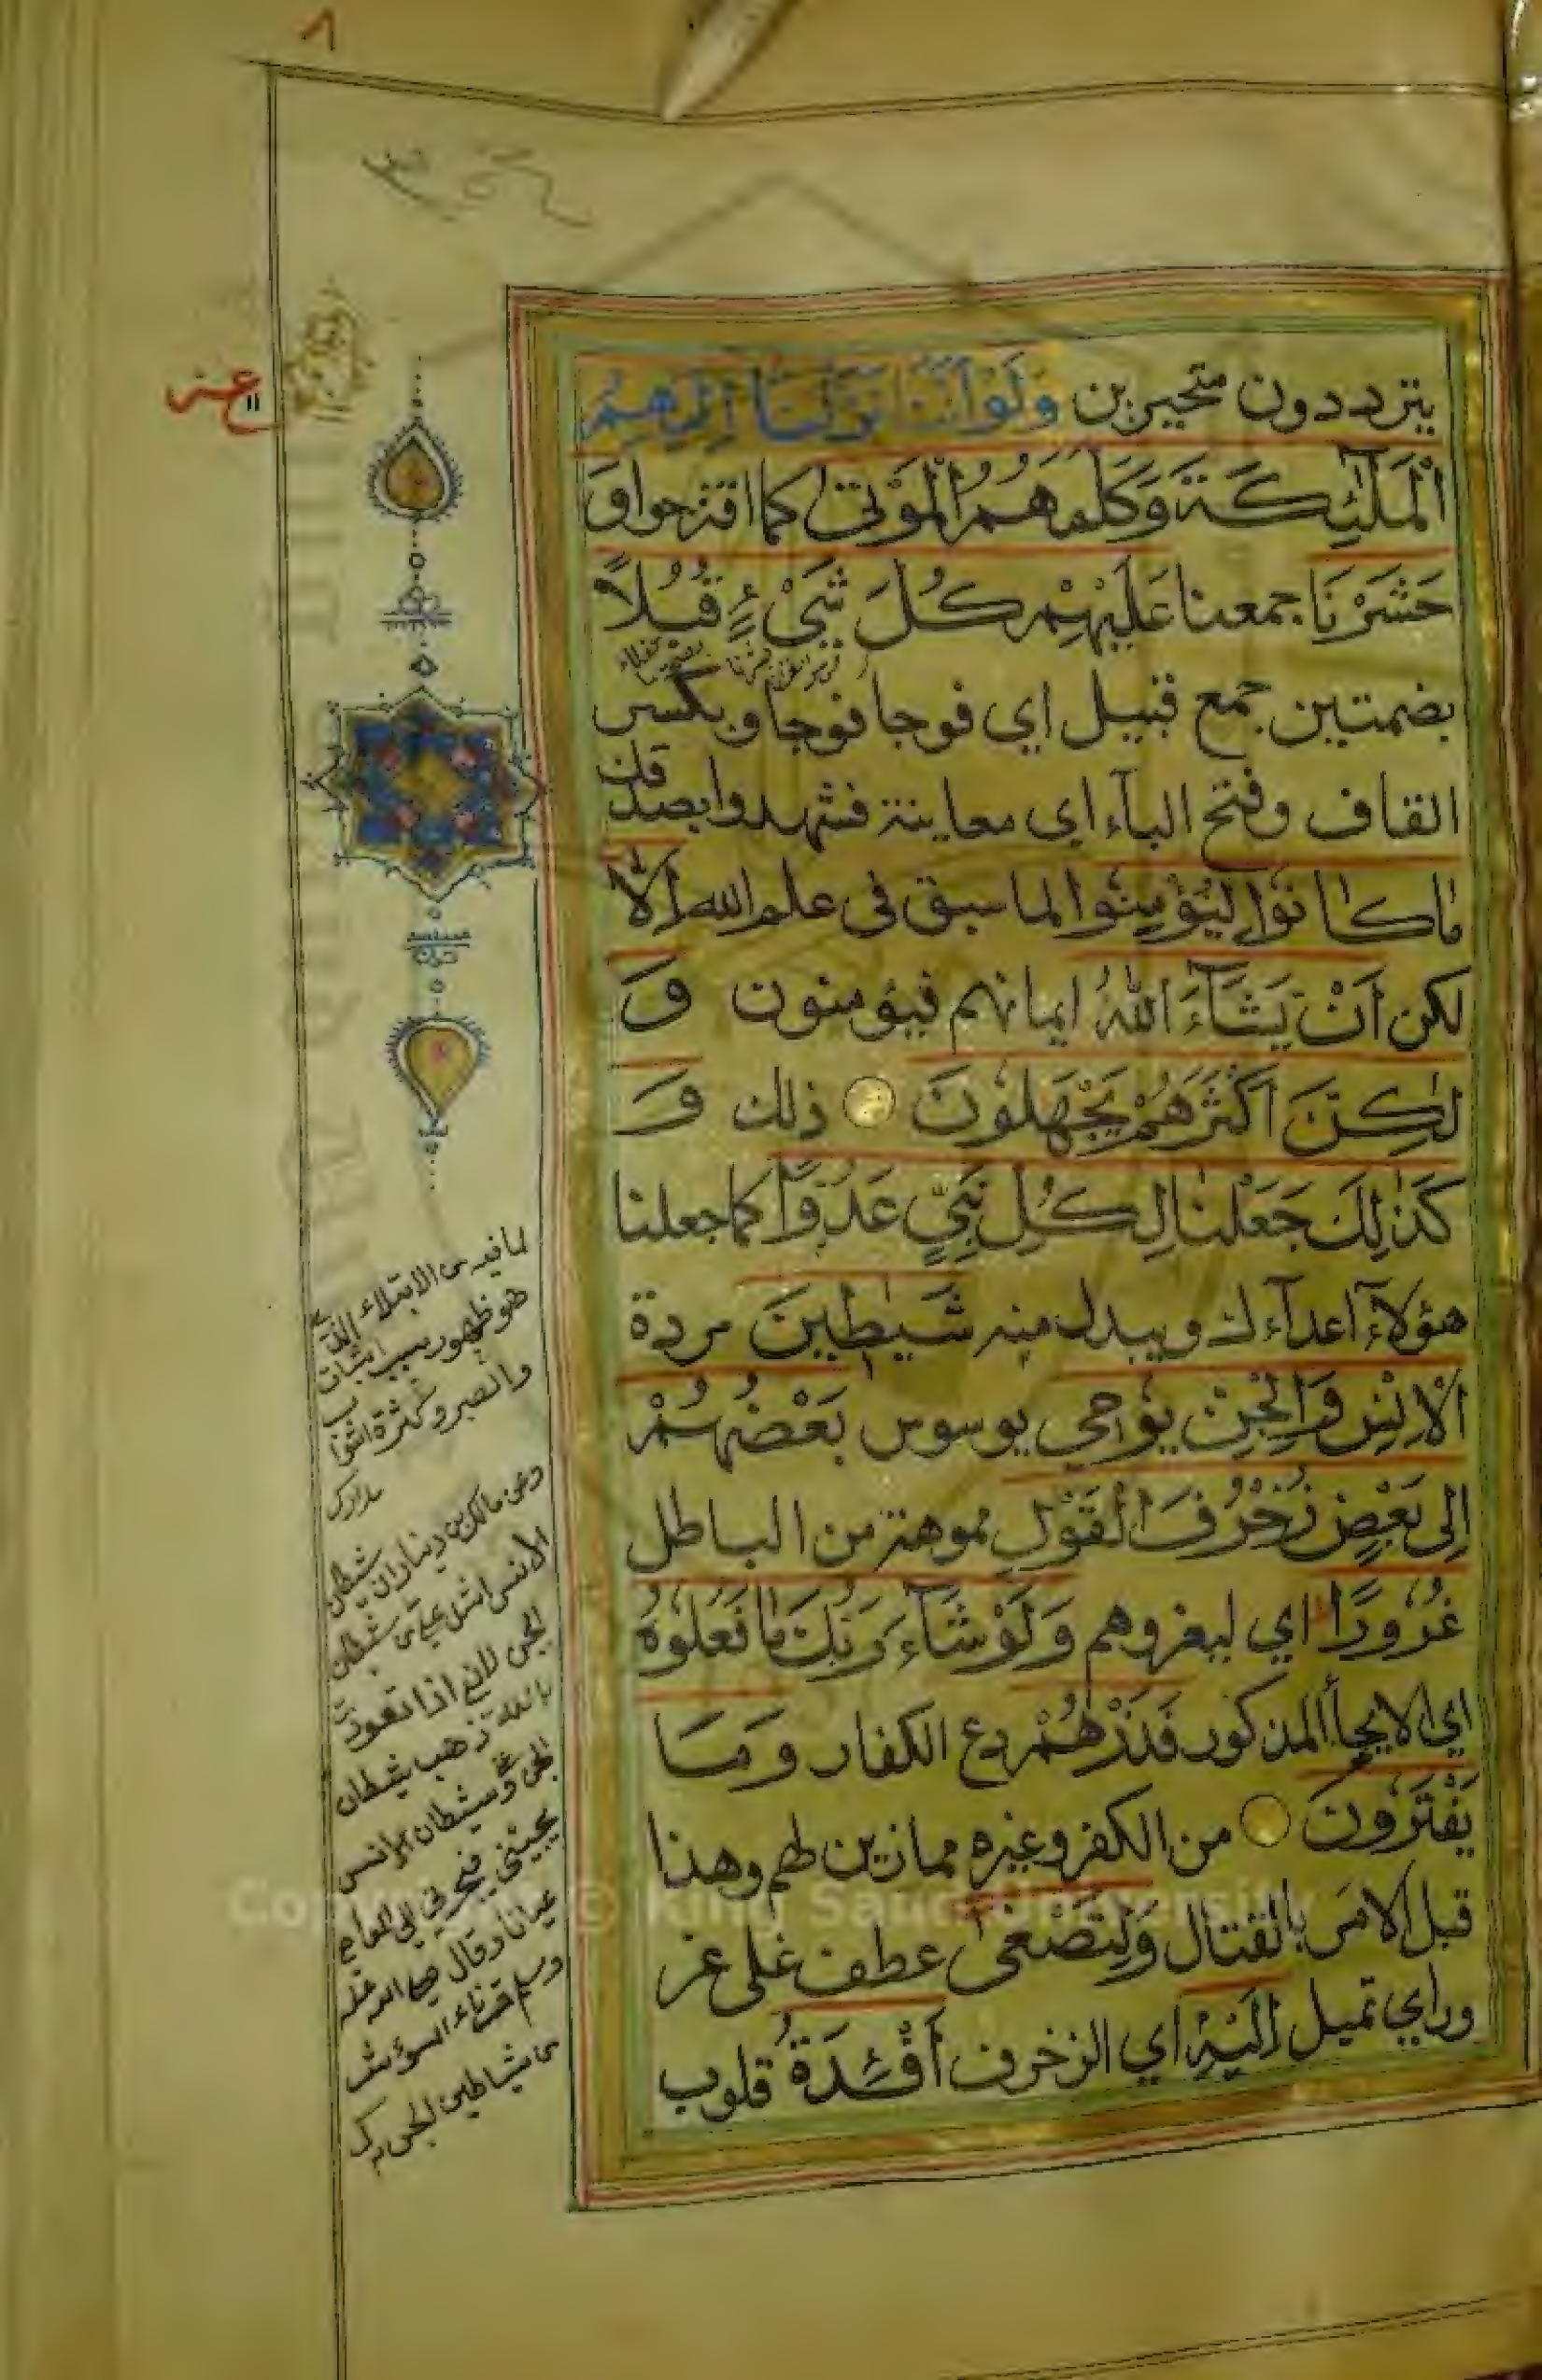 ٨
يترددون متحيرين وَلَوْ أَنَّنَا نَزَّلْنَا إِلَيْهِمُ
الْمَلٰٓئِكَةَ وَكَلَّمَهُمُ الْمَوْتٰى كما اقترحوا وَ
حَشَرْنَا جمعنا عَلَيْهِمْ كُلَّ شَيْءٍ قُبُلًا
بضمتين جمع قبيل اي فوجا فوجا وبكسر
القاف وفتح البآء اي معاينة فشهدوا بصدقك
مَا كَانُوا لِيُؤْمِنُوا لما سبق في علم الله اِلَّا
لكن اَنْ يَشَآءَ اللّٰهُ ايمانهم فيؤمنون وَ
لٰكِنَّ اَكْثَرَهُمْ يَجْهَلُونَ ذلك وَ
كَذٰلِكَ جَعَلْنَا لِكُلِّ نَبِيٍّ عَدُوًّا كما جعلنا
هؤلآء اعدآءك ويبدل منه شَيٰطِينَ مردة
الْاِنْسِ وَالْجِنِّ يُوحِي يوسوس بَعْضُهُمْ
اِلٰى بَعْضٍ زُخْرُفَ الْقَوْلِ مموهة من الباطل
غُرُورًا اي ليغروهم وَلَوْ شَآءَ رَبُّكَ مَا فَعَلُوهُ
اي الايحاء المذكور فَذَرْهُمْ دع الكفار وَمَا
يَفْتَرُونَ من الكفر وغيره مما زين لهم وهذا
قبل الامر بالقتال وَلِتَصْغٰى عطف على غر
ورا اي تميل اِلَيْهِ اي الزخرف اَفْئِدَةُ قلوب
لما فيه من الابتلاء الذي
هو ظهور سبب اثبات
والصبر وكثرة الثواب
مدارك
وعن مالك بن دينار ان شيطان
الانس اشد علي من شيطان
الجن لاني اذا تعوذت
بالله ذهب شيطان
الجن عني وشيطان الانس
يجيئني فيجرني الى المعاصي
عيانا وقال صلى الله عليه
وسلم قرناء السوء شر
من شياطين الجن مدارك
Copyright © King Saud University